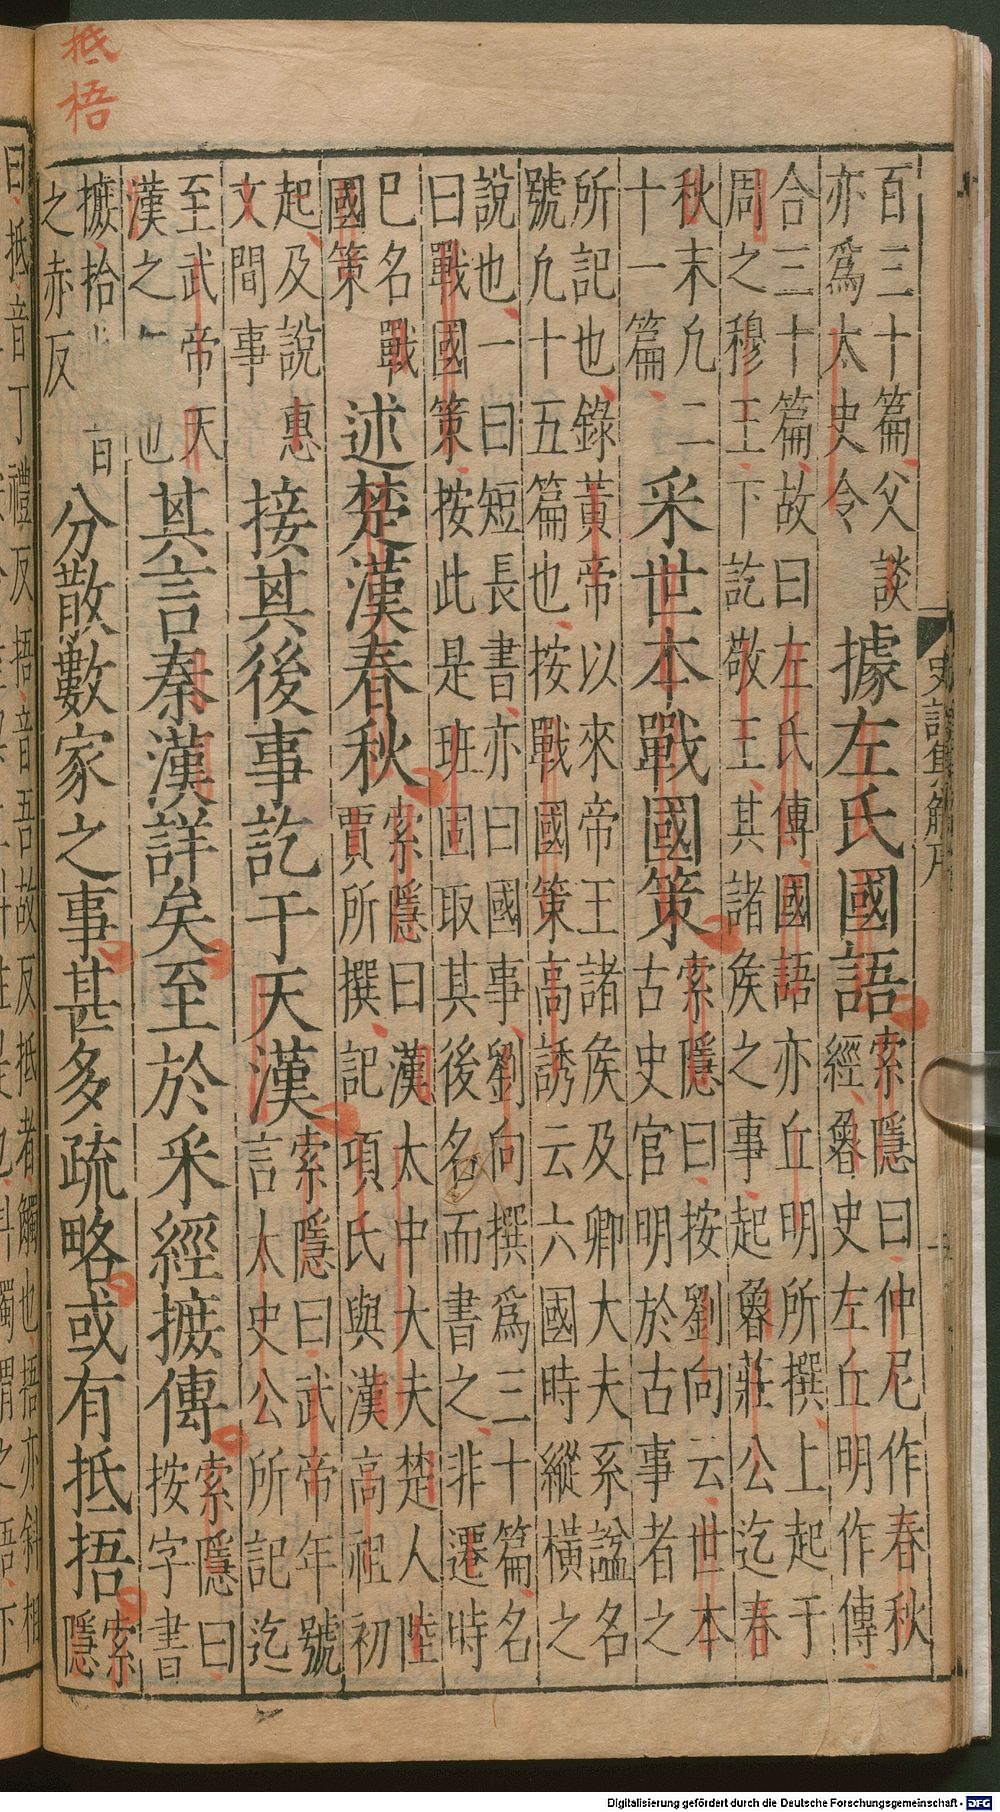 抵梧
史記集解序
百三十篇父談
亦爲太史令
據左氏國語
索隱曰仲尼作春秋
經魯史左丘明作傳
合三十篇故曰左氏傳國語亦丘明所撰上起于
周之穆王下訖敬王其諸侯之事起魯莊公迄春
秋末凡二
十一篇
采世本戰國策
索隱曰按劉向云世本
古史官明於古事者之
所記也錄黃帝以來帝王諸侯及卿大夫系謚名
號凡十五篇也按戰國策高誘云六國時縱橫之
說也一曰短長書亦曰國事劉向撰爲三十篇名
曰戰國策按此是班固取其後名而書之非遷時
巳名戰
國策
述楚漢春秋
索隱曰漢太中大夫楚人陸
賈所撰記項氏與漢高祖初
起及說惠
文間事
接其後事訖于天漢
索隱曰武帝年號
言太史公所記迄
至武帝天
漢之也
其言秦漢詳矣至於采經摭傳
索隱曰
按字書
摭拾音
之赤反
分散數家之事甚多疏略或有抵捂
索
隱
曰抵音丁禮反捂音吾故反抵者觸也捂亦斜相
Digitalisierung gefördert durch die Deutsche Forschungsgemeinschaft - DFG